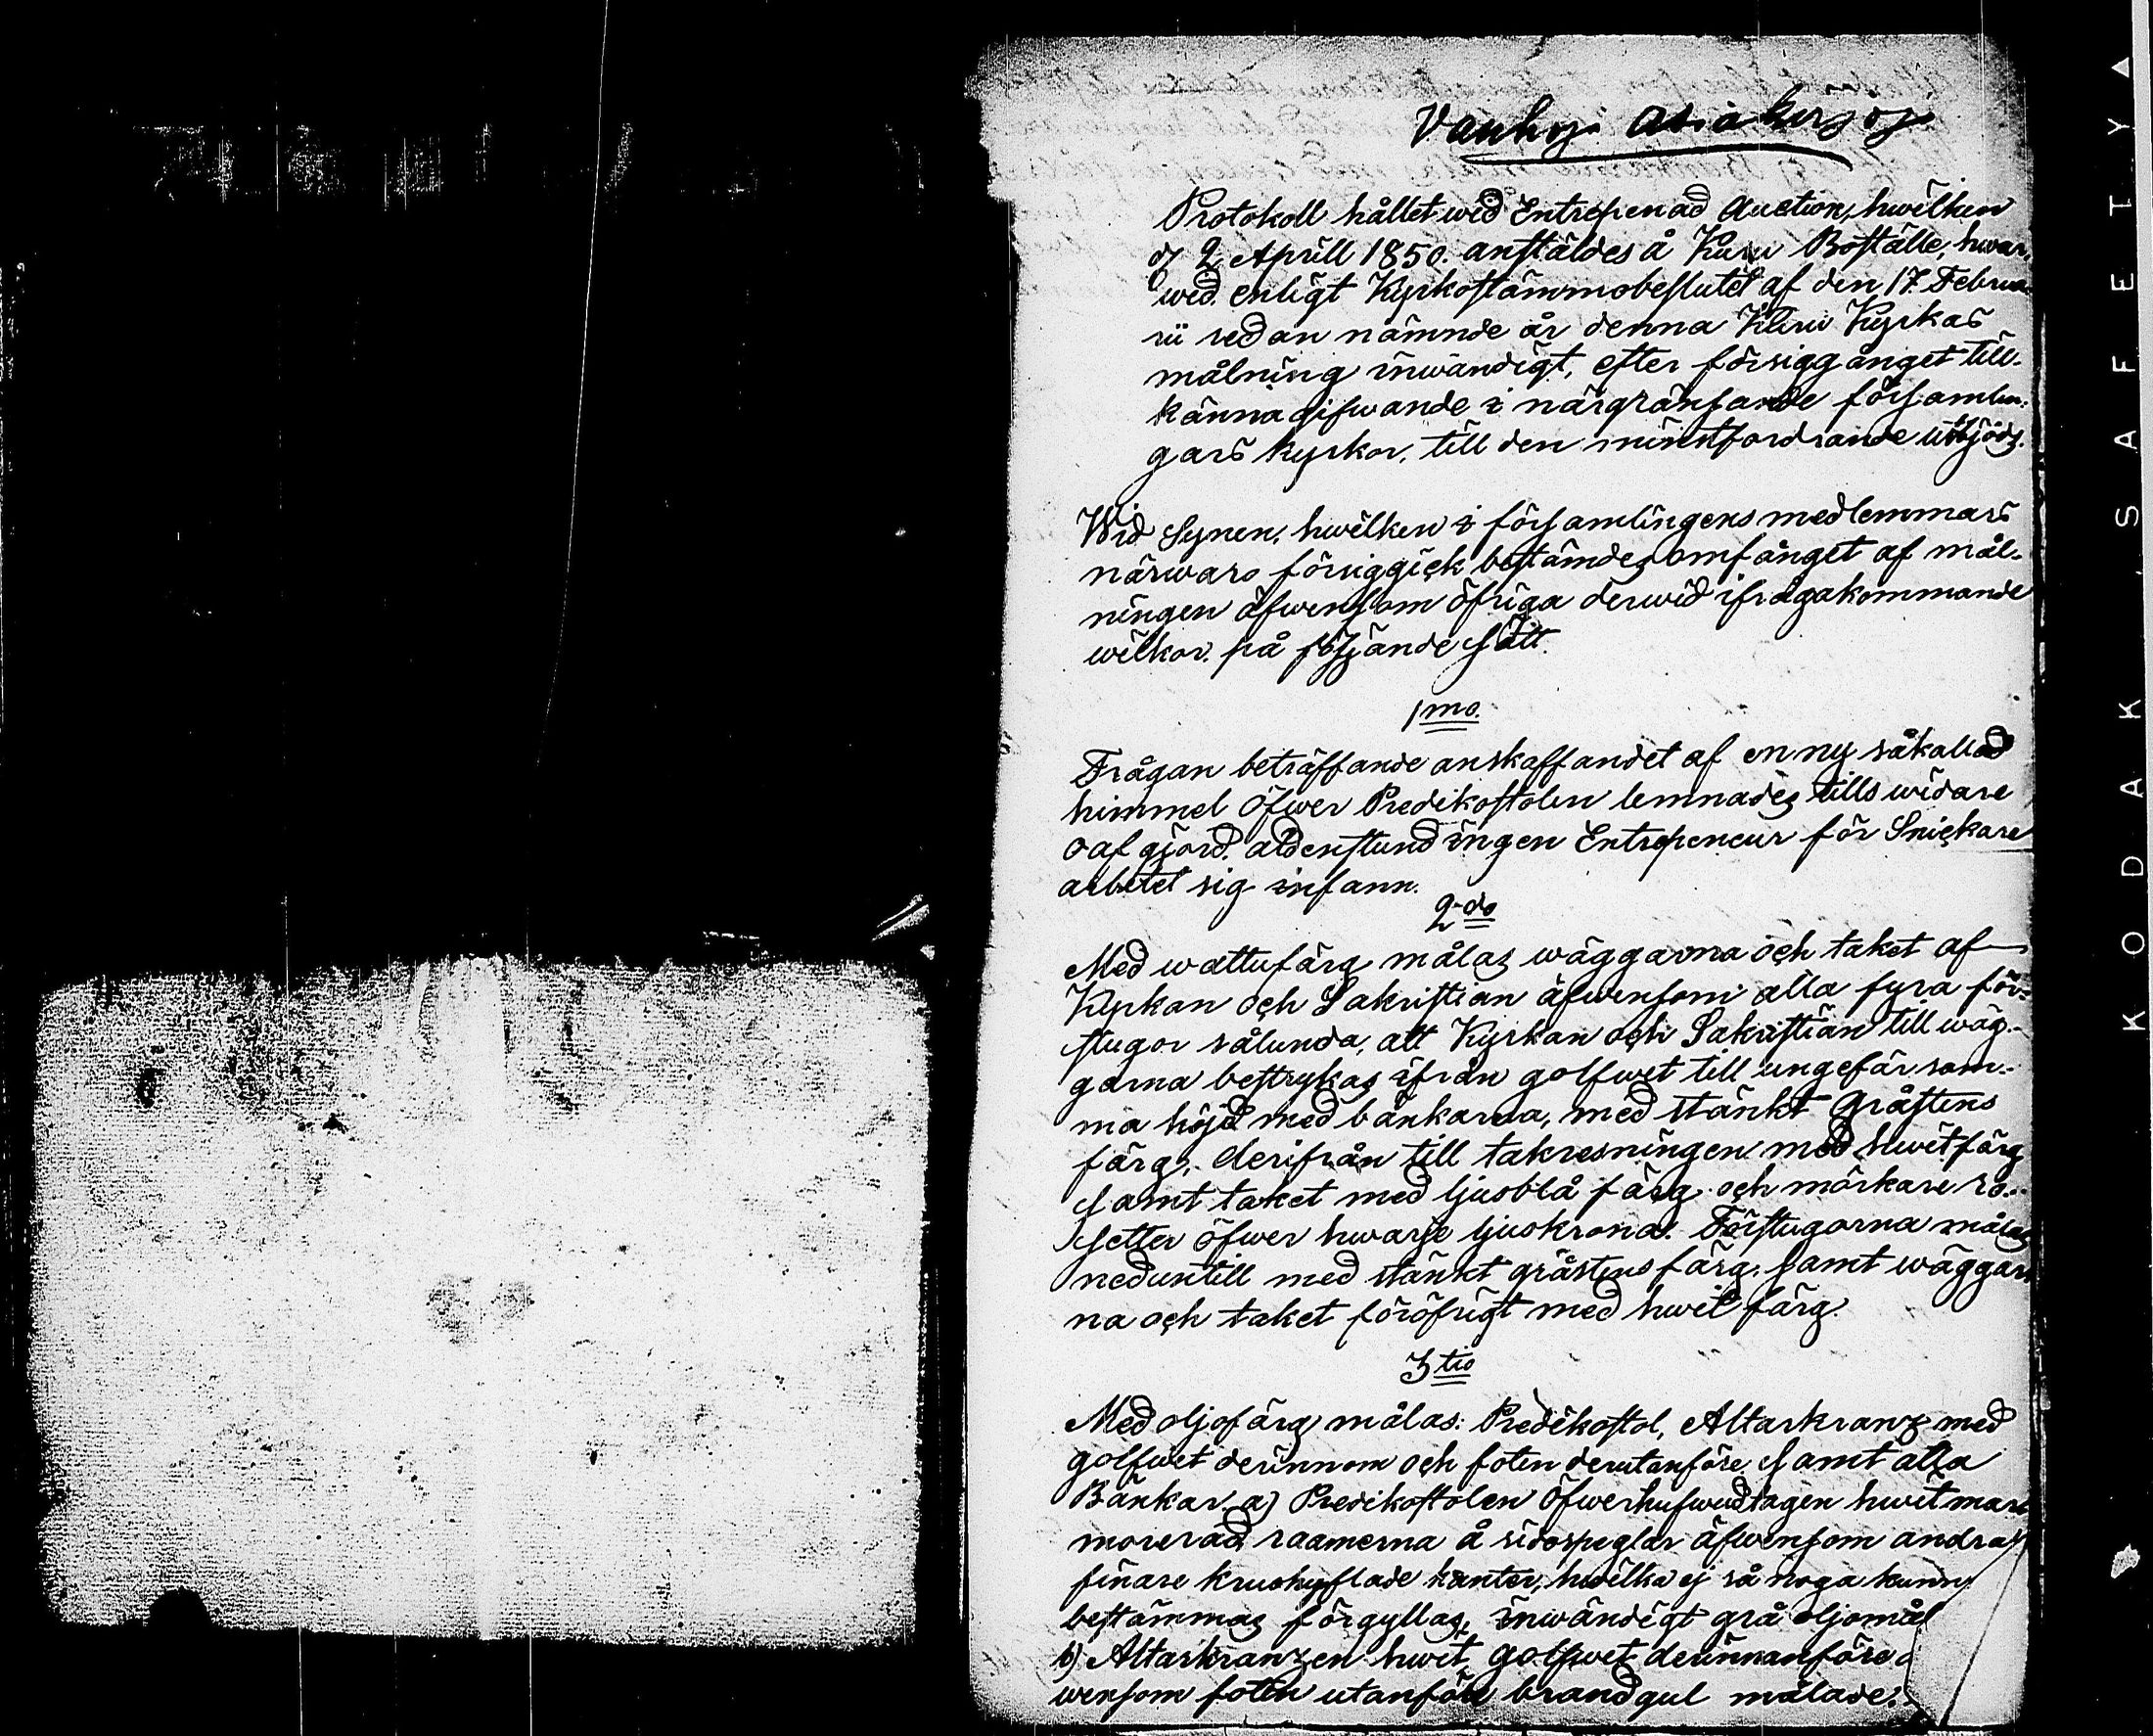 Vanhoja asiakirjoja
Protokoll hållet wid Entrepenad Auction, hwilken
d 2 Aprill 1850. anställdes å Kuru Boställe, hwar
wid. enligt Kyrkostämmobeslutet af den 17 Februa
rii sedan nämnde år denna Kuru Kyrkas
målning inwändigt, efter försiggånget till-
kännagifwande i närgränsande församlin-
gars kyrkor. till den minstfordrande utbjöds.
Wid Synen. hwilken i församlingens medlemmars
närwaro försiggick bestämdes omfånget af mål-
ningen äfwensom öfriga derwid ifrågakommande
wilkor. på följande sätt.
1mo.
Frågan beträffande anskaffandet af en ny såkallad
himmel öfwer Predikostolen lemnades tills widare
oafgjord. aldenstund ingen Entrepeneur för Snickare
arbetet sig infann.
2do
Med wattufärg målas wäggarna och taket af
Kyrkan och Sakristian äfwensom alla fyra för-
stugor sålunda, att Kyrkan och Sakristian till wäg-
garna bestrykas ifrån golfwet till ungefär sam-
ma höjd med bänkarna, med stänkt gråstens
färg, derifrån till takresningen med hwit färg
samt taket med ljusblå färg och mörkare ro-
setter öfwer hwarje ljuskrona. Förstugorna målas
neduntill med stänkt gråstens färg. samt wäggar
na och taket föröfrigt med hwit färg.
3tio
Med oljofärg målas: Predikostol, Altarkranz med
golfwet derinnom och foten derutanföre samt alla
Bänkar. a) Predikostolen öfwerhufwudtagen hwit mar
morerad, raamerna å sidospeglar äfwensom andra
finare krushyflade kanter, hwilka ej så noga kunna
bestämmas förgyllas, inwändigt grå oljomål
b) Altarkranzen hwit golfwet derinnanföre ä
wensom foten utanföre brandgul målade.